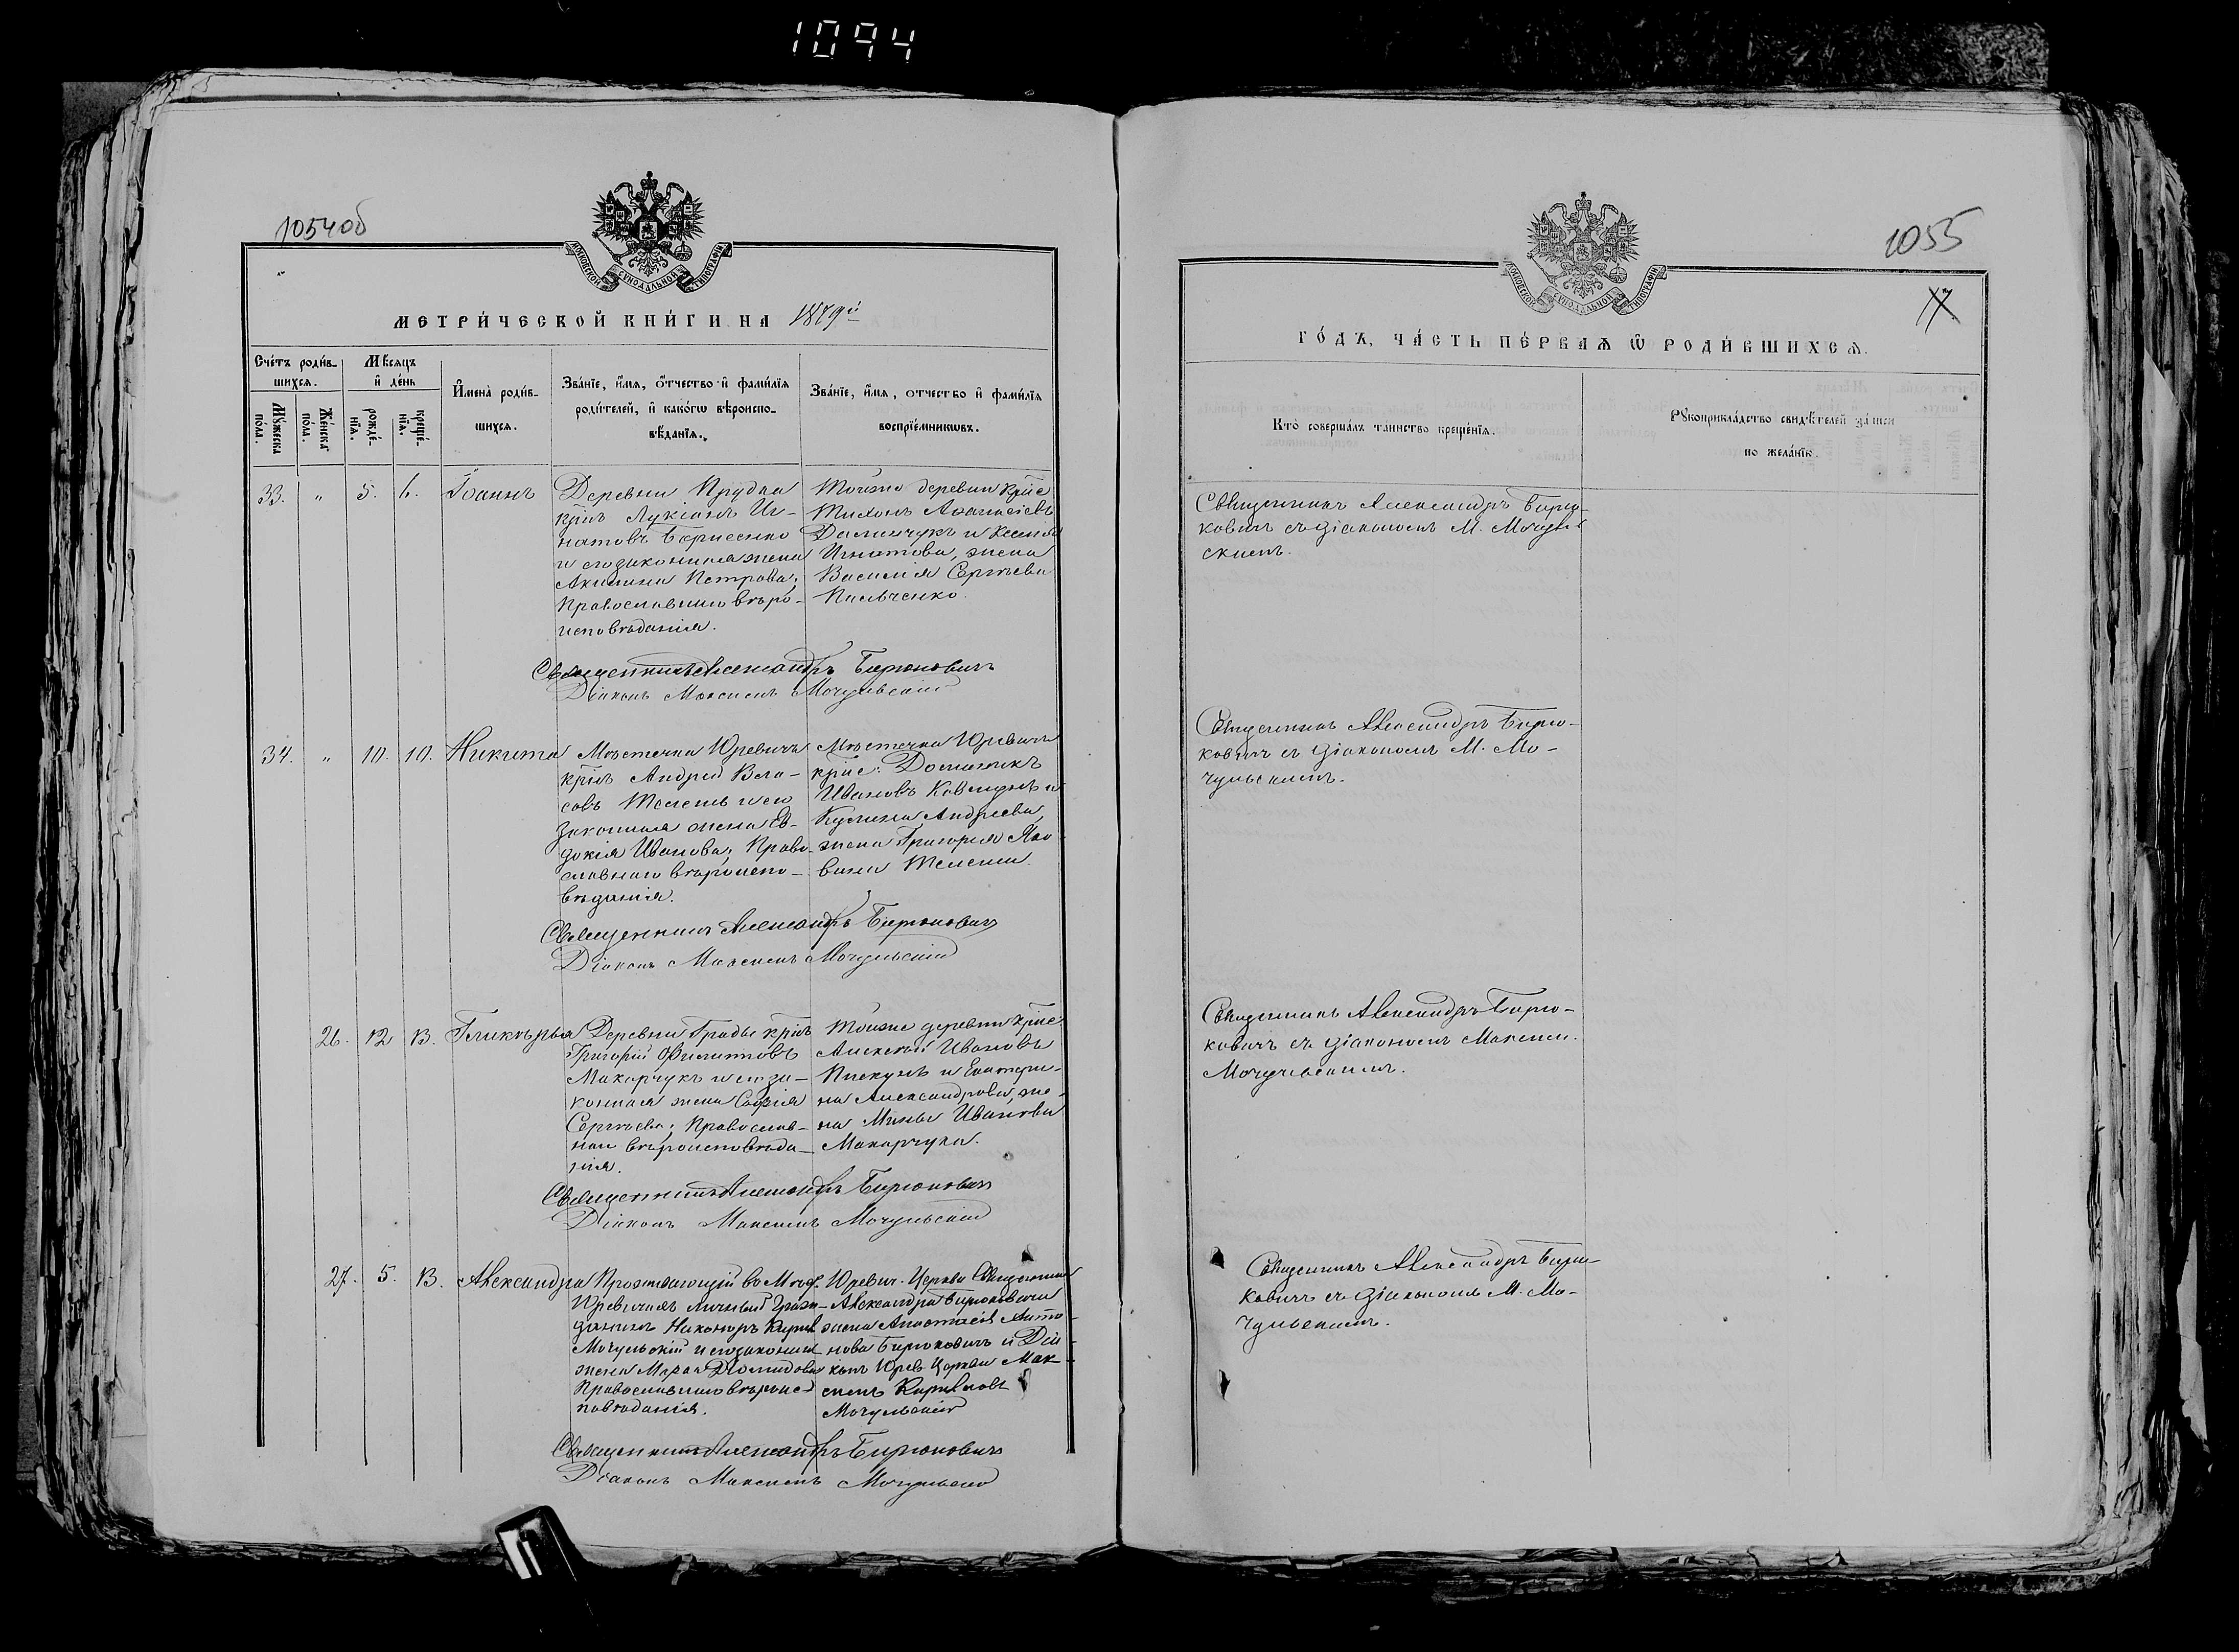 1094
1054об
МОСКОВСКОЙ СѴНОДАЛЬНОЙ ТИПОГРАФІИ
МЕТРИ́ЧЕСКОЙ КНИ́ГИ НА 1879й
Сче́тъ роди́в-
шихся.
Мѣ́сяцъ
и҆ де́нь
Мꙋ́жеска по́ла.
Же́нска по́ла.
рожде́-
нїя.
креще́-
нїя.
И҆мена̀ роди́в-
шихся.
Зва́нїе, и҆́мя, ѻ҆́тчество и҆ фами́лїя
роди́телей, и҆ какогѡ вѣроиспо-
вѣ́данїя.
Зва́нїе, и҆́мя, отчество и҆ фами́лїя
воспрїе́мниковъ.
33. " 5. 6. Іоаннъ
Деревни Прудка
крнъ Лукіанъ Иг-
натовъ Борисенко
и его законная жена
Акилина Петрова;
Православнаго вѣро-
исповѣданія.
Тойже деревни крпе
Тихонъ Аѳанасіевъ
Игнатова, жена
Василія Сергѣева
Священникъ Александръ Бирюковичъ
Діаконъ Максимъ Мочульскій
34. " 10. 10. Никита
Мѣстечка Юревичъ
крнъ Андрей Вла-
совъ и его
законная жена Ев-
докія Иванова; Право-
славнаго вѣроиспо-
вѣданія.
Мѣстечка Юревичъ
крне: Доминикъ
Ивановъ Ковтунъ и
Андреева,
жена Григорія Яко-
влева
Священникъ Александръ Бирюковичъ
Діаконъ Максимъ Мочульскій
26. 12. 13. Гликерья
Деревни Грады крнъ
Григорій Филиповъ
Макарчукъ и его за-
конная жена Софія
Сергѣева; Православ-
наго вѣроисповѣда-
нія.
Тойже деревни крне
Алексѣй Ивановъ
Пискунъ и Екатери-
на Александрова, же-
на Мины Иванова
Макарчука.
Священникъ Александръ Бирюковичъ
Діаконъ Максимъ Мочульскій
27. 5. 13. Александра
Проживающій въ Мѣст.
Юревичахъ личный граж-
данинъ Никаноръ Кирил.
Мочульскій и его законная
жена Марія Діомидова
Православнаго вѣроис-
повѣданія.
Юревич. Церкви Священника
Александра Бирюковича
жена Анастасія Анто-
нова Бирюковичъ и Діа-
конъ Юрев. Церкви Мак-
симъ Кирилловъ
Мочульскій
Священникъ Александръ Бирюковичъ
Діаконъ Максимъ Мочульскій
1055
МОСКОВСКОЙ СѴНОДАЛЬНОЙ ТИПОГРАФІИ
ГО́ДЪ, ЧА́СТЬ ПЕ́РВАЯ Ѡ РОДИ́ВШИХСЯ.
Кто̀ соверша́лъ та́инство креще́нїя.
Рꙋкоприкла́дство свидѣ́телей за́писи
по жела́нїю.
Священникъ Александръ Бирю-
ковичъ съ діакономъ М. Мочуль-
скимъ.
Священникъ Александръ Бирю-
ковичъ съ діакономъ М. Мо-
чульскимъ.
Священникъ Александръ Бирю-
ковичъ съ діакономъ Максим.
Мочульскимъ.
Священникъ Александръ Бирю-
ковичъ съ діакономъ М. Мо-
чульскимъ.